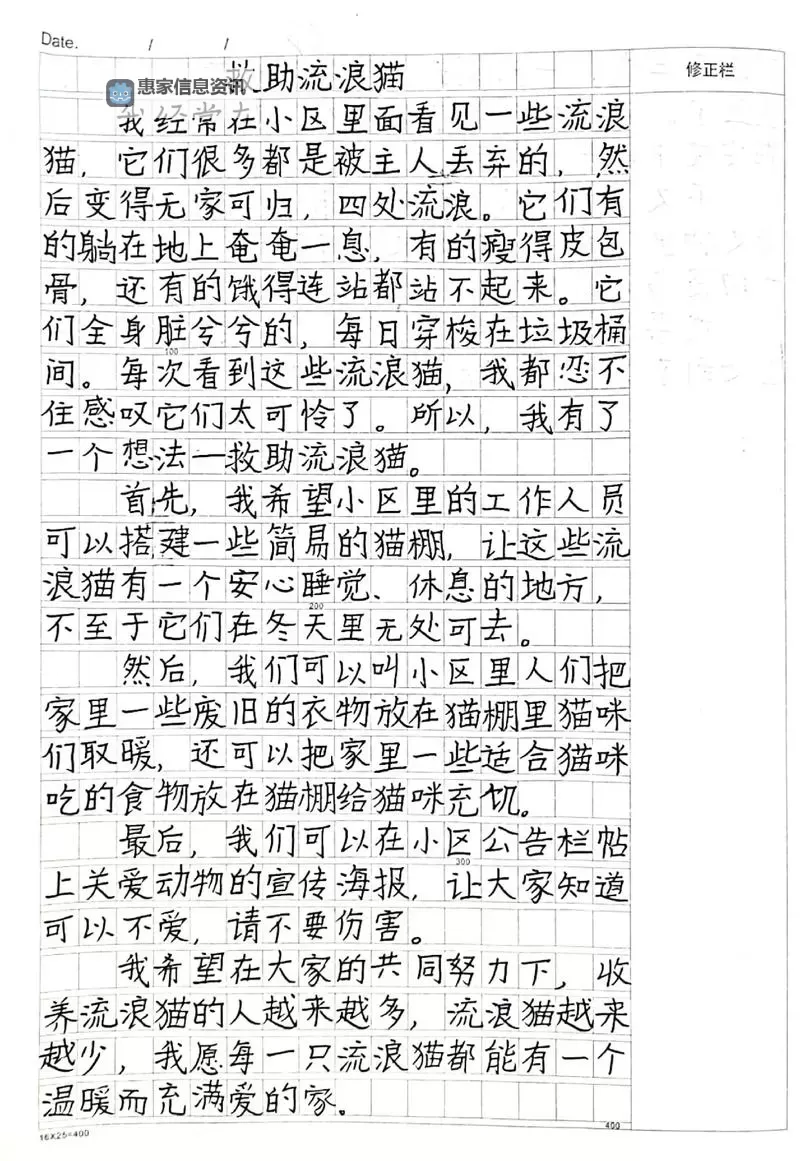 Date. / /
惠家信息资讯
救助流浪猫
修正栏
我经常在小区里面看见一些流浪
猫，它们很多都是被主人丢弃的，然
后变得无家可归，四处流浪。它们有
的躺在地上奄奄一息，有的瘦得皮包
骨，还有的饿得连站都站不起来。它
们全身脏兮兮的，每日穿梭在垃圾桶
100
间。每次看到这些流浪猫，我都忍不
住感叹它们太可怜了。所以，我有了
一个想法—救助流浪猫。
首先，我希望小区里的工作人员
可以搭建一些简易的猫棚，让这些流
浪猫有一个安心睡觉、休息的地方，
200
不至于它们在冬天里无处可去。
然后，我们可以叫小区里人们把
家里一些废旧的衣物放在猫棚里猫咪
们取暖，还可以把家里一些适合猫咪
吃的食物放在猫棚给猫咪充饥。
最后，我们可以在小区公告栏帖
300
上关爱动物的宣传海报，让大家知道
可以不爱，请不要伤害。
我希望在大家的共同努力下，收
养流浪猫的人越来越多，流浪猫越来
越少，我愿每一只流浪猫都能有一个
温暖而充满爱的家。
16X25=400
400